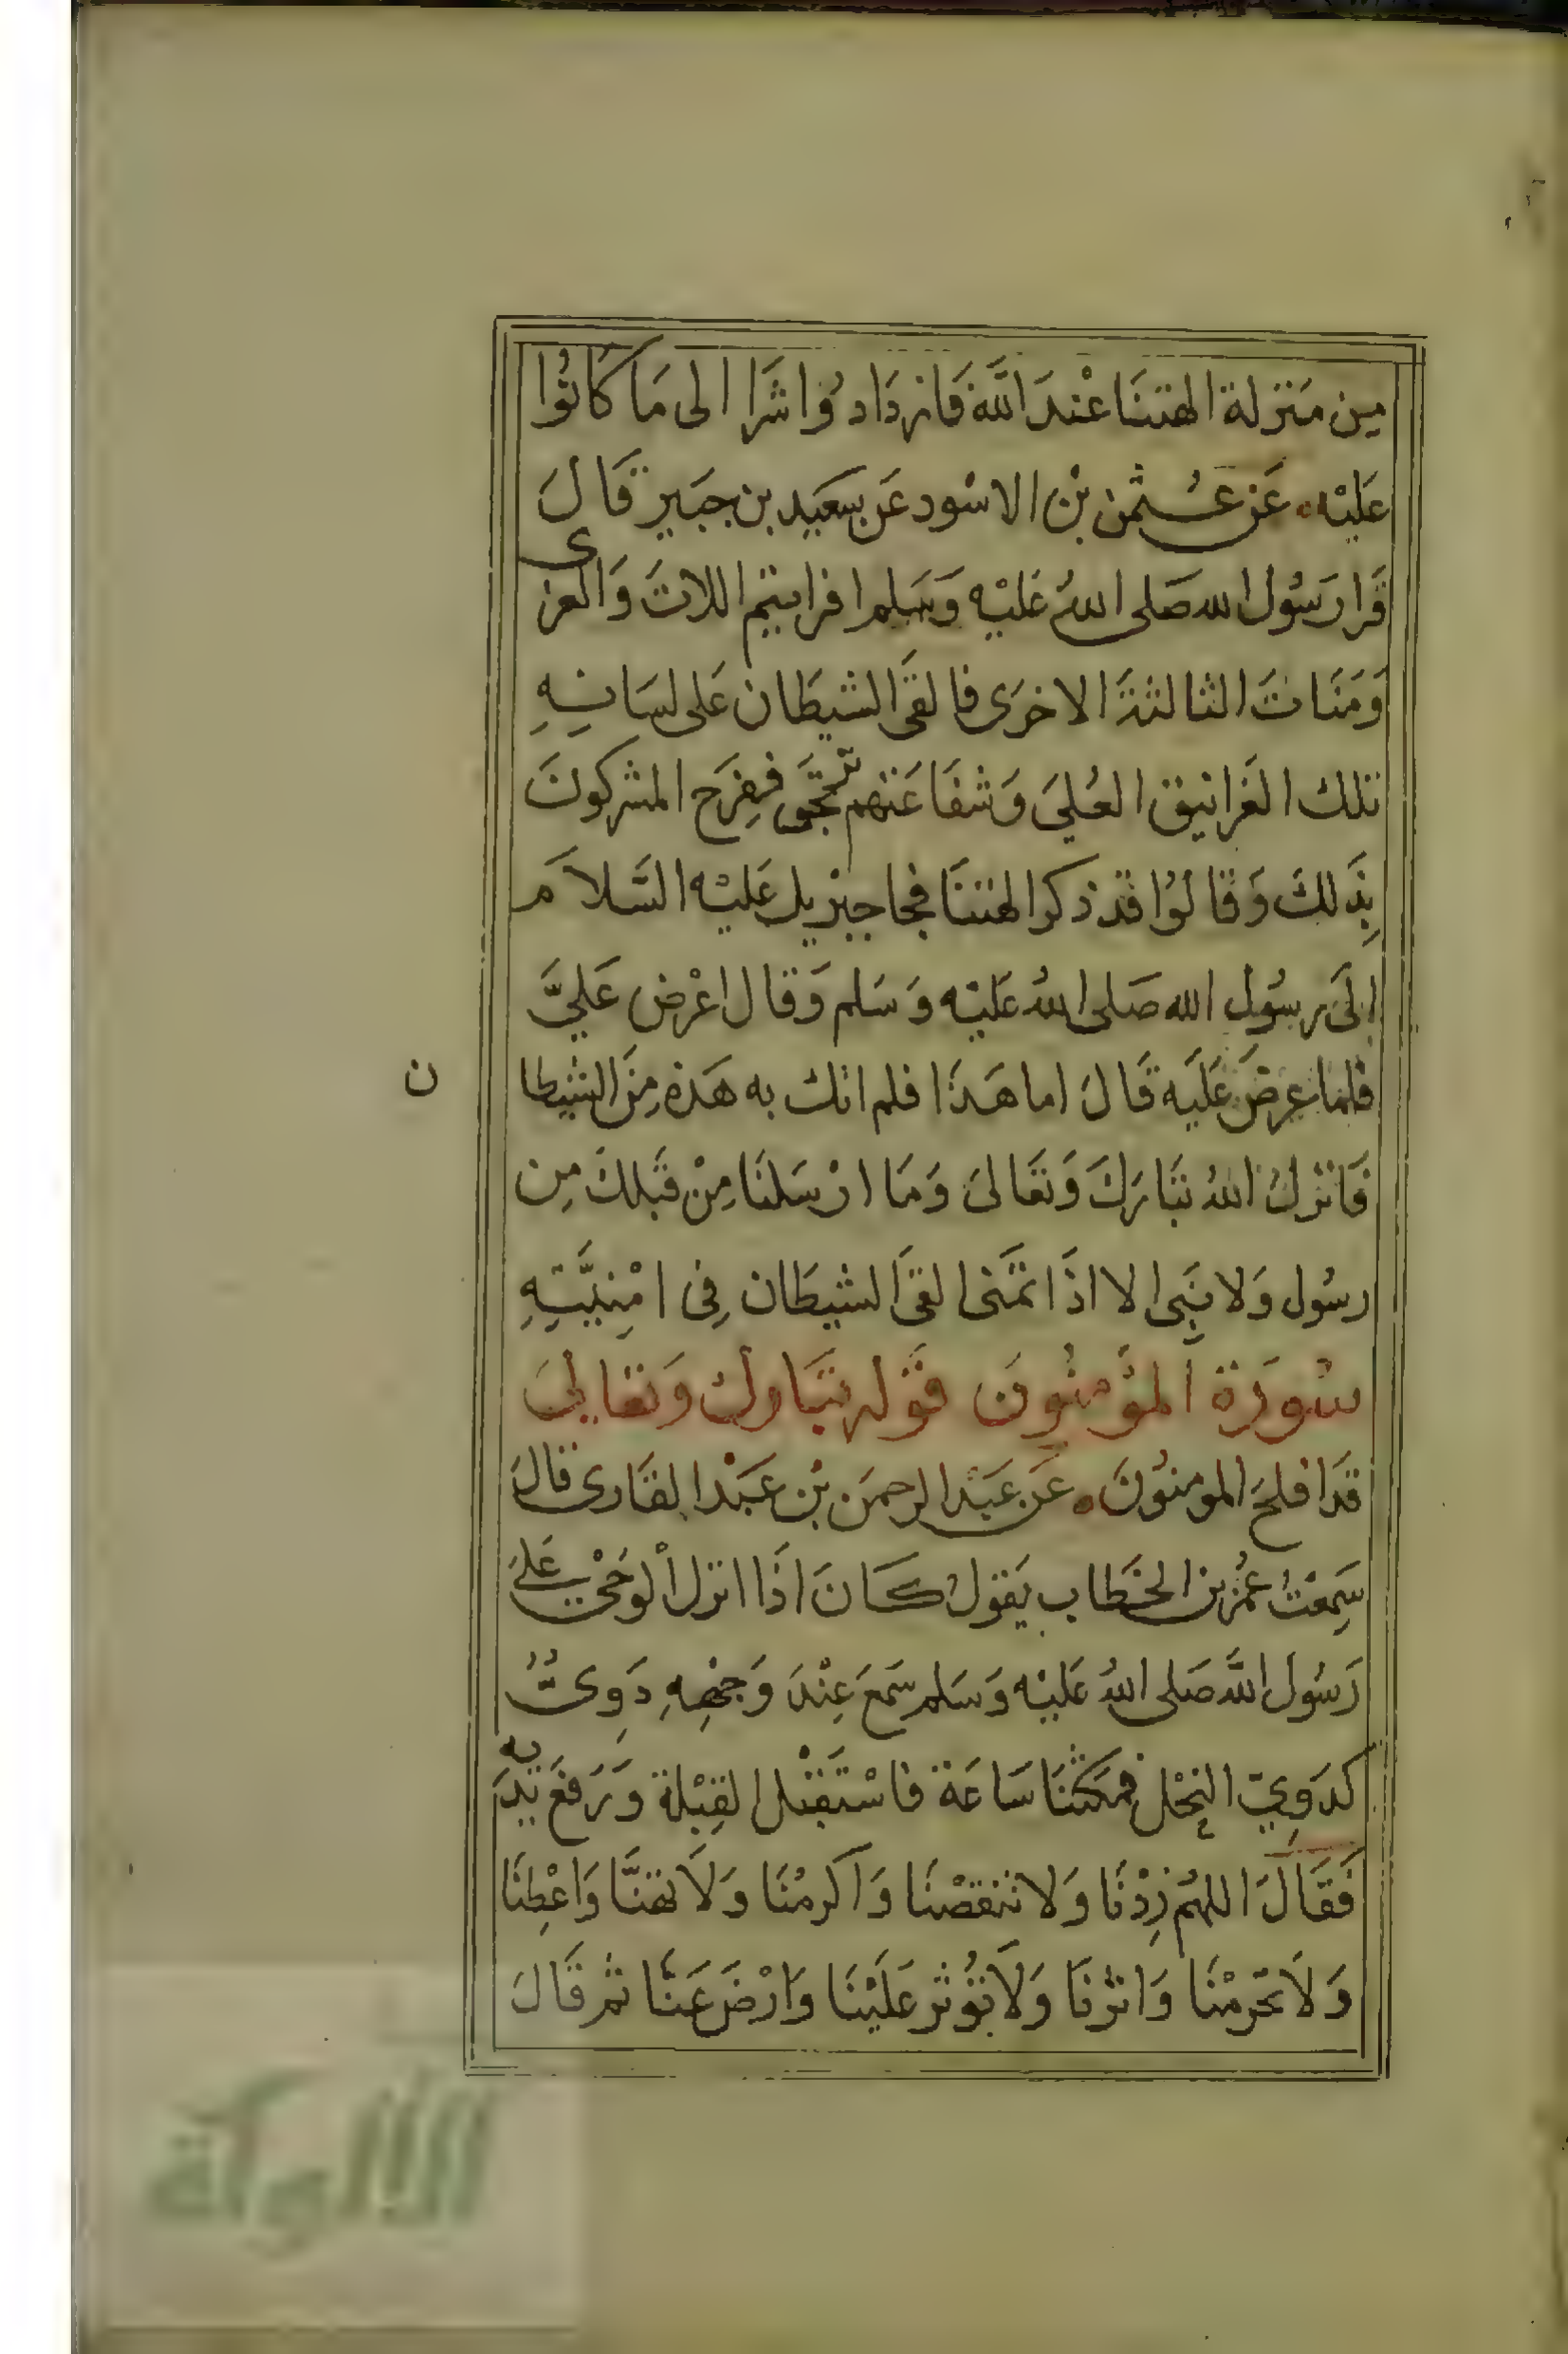 مِن مَنزلة الهتنَا عْندَ اللَّه فَازدَادُوا شَرا الى مَا كَانُوا
عَليْه عَن عُثمٰن بْن الاسْود عَن سَعَيد بن جبَير قَالَ
قَرا رَسُول الله صَلى اللهُ عَليْه وَسَلم افرايتم اللاتَ وَالعزى
وَمَنَاتَ الثالثةَ الاخرَى فالقَى الشيطَان عَلى لسَانِهِ
تلك الغَرانيق العُليَ وَشفَاعَتهم ترتجَى ففِرَح المشركونَ
بِذَلكَ وَقالوُا قَد ذكر الهتنَا فجا جبْريل عَليْه السَّلاَم
الىَ رسُول الله صَلى اللهُ عَليْه وَسَلم وَقال اعْرض عَليَّ
فلما عرضَ عَليَه قَالَ اما هَذَا فلم اتك به هَذه مِنَ الشيطا
ن
فَانزلُ اللهُ تبَارَكَ وَتعَالىَ وَمَا ارْسَلنَا مِنْ قبَلكَ مِن
رسُول وَلا نبَِى الا اذَا تمَنى القَى الشيطَان فِى امْنِيَّتِهِ
سُورَة المؤمنُونَ قوَله تبَارك وَتعَالىَ
قَد افلحَ المومنوُنَ عَن عَبْد الرحمَن بْن عَبْد القَارى قالَ
سَمِعْتُ عُمَر بن الخطَاب يَقولُ كَانَ اذَا انزل الْوَحْيُ عَلىَ
رَسُول اللَّه صَلى اللهُ عَليْه وَسَلم سَمعَ عِنْدَ وَجْههِ دَوِىٌّ
كدَوِيّ النحْل فمكَثنَا سَاعَة فاسْتَقبْل القِبْلة وَرَفعَ يَدَيه
فَقَالَ اللهُم زِدْنَا وَلا تنقصْنَا وَاكرمْنَا وَلاَ تهنَّا وَاعْطِنَا
وَلاَ تحَرمْنَا وَاثرنَا وَلاَ تؤُثر عَليْنَا وَارْضَ عَنَّا ثم قَالَ
الألوكة